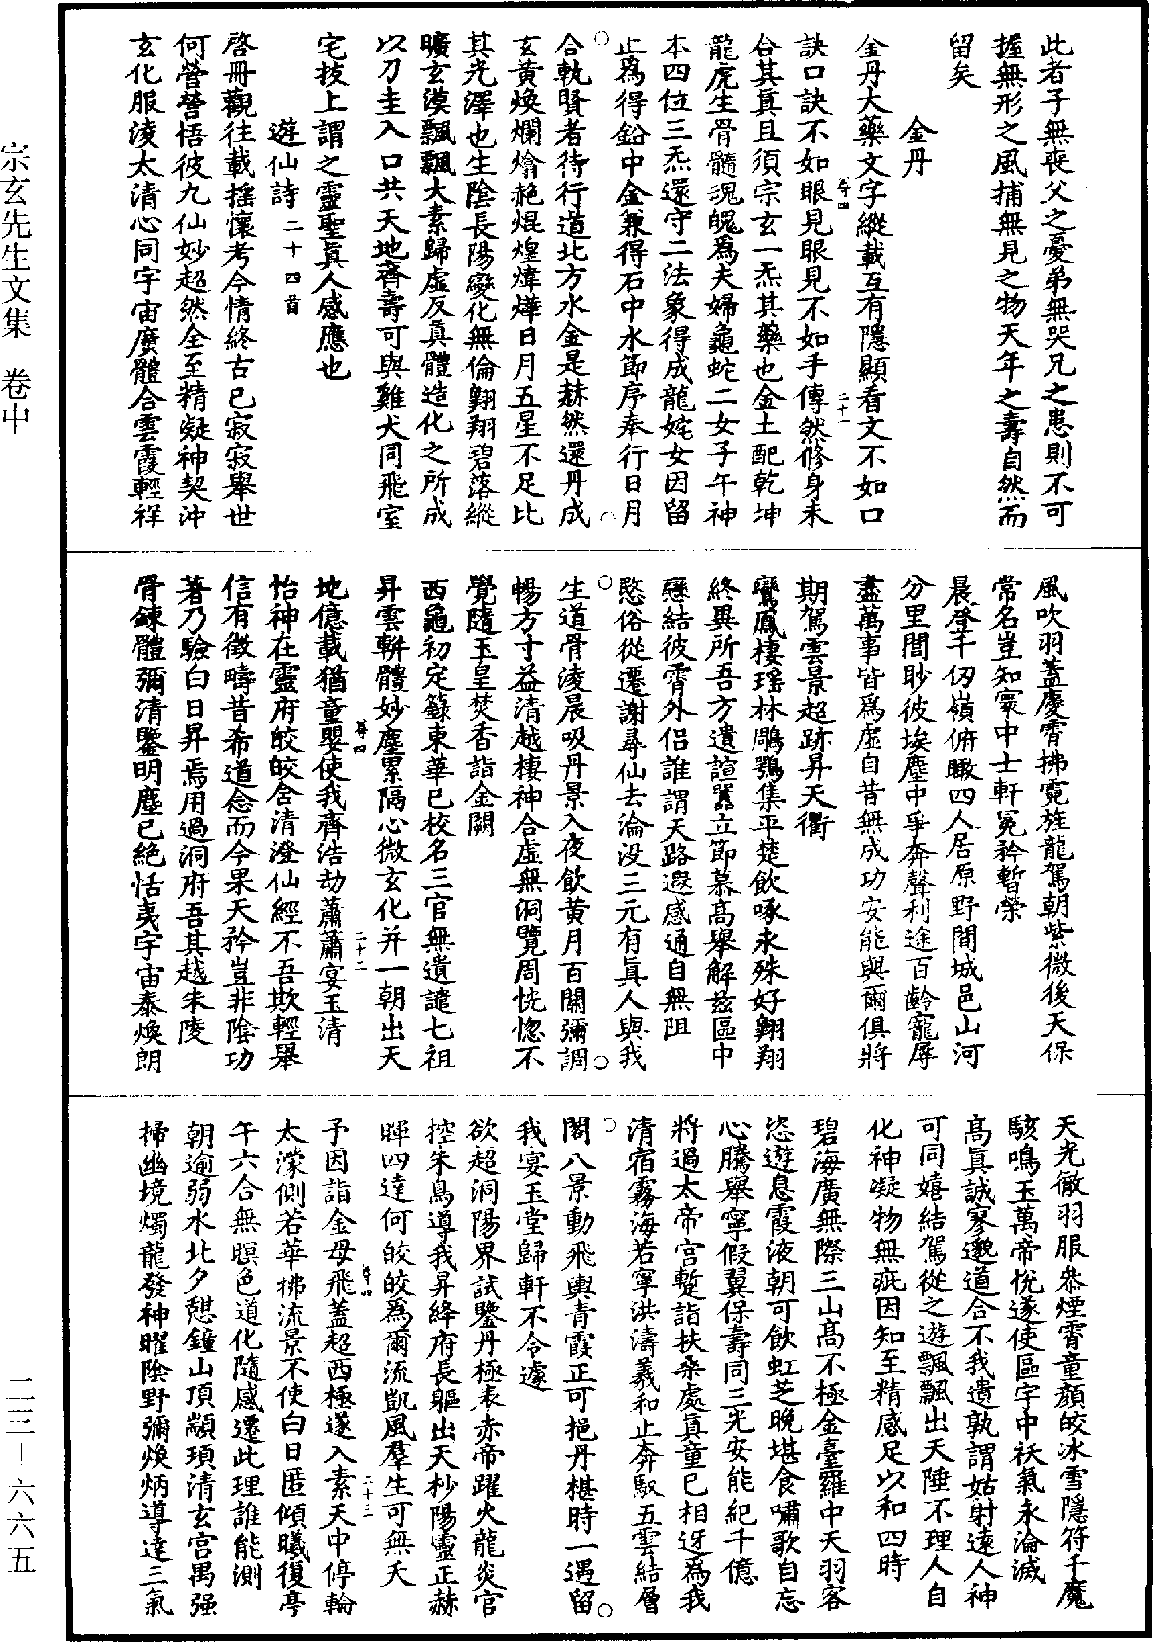 此者子無喪父之憂弟無哭兄之患則不可
握無形之風捕無見之物天年之壽自然而
留矣
金丹
金丹大藥文字縱載互有隱顯看文不如口
訣口訣不如眼見眼見不如手傳然修身未
合其真且須宗玄一炁其藥也金土配乾坤
龍虎生骨髓魂魄為夫婦龜蛇二女子午神
本四位三炁還守二法象得成龍姹女因留
止為得鉛中金兼得石中水節序奉行日月
合執賢者待行道北方水金是赫然還丹成
玄黃煥爛爚赩焜煌煒燁日月五星不足比
其光澤也生陰長陽變化無倫翱翔碧落縱
曠玄漠飄飄大素歸虛反真體造化之所成
以刀圭入口共天地齊壽可與雞犬同飛室
宅拔上謂之靈聖真人感應也
遊仙詩二十四首
啓冊觀往載搖懷考今情終古已寂寂舉世
何營營悟彼九仙妙超然全至精凝神契沖
玄化服淩太清心同宇宙廣體合雲霞輕祥
風吹羽蓋慶霄拂霓旌龍駕朝紫微後天保
常名豈知寰中士軒冕矜暫榮
晨登千仞嶺俯瞰四人居原野間城邑山河
分里閭眇彼埃塵中爭奔聲利途百齡寵辱
盡萬事皆為虛自昔無成功安能與爾俱將
期駕雲景超跡昇天衢
鸞鳳棲瑤林鵰鶚集平楚飲啄永殊好翱翔
終異所吾方遺諠囂立節慕高舉解茲區中
戀結彼霄外侶誰謂天路遐感通自無阻
愍俗從遷謝尋仙去淪没三元有真人與我
生道骨淩晨吸丹景入夜飲黃月百關彌調
暢方寸益清越棲神合虛無洞覽周恍惚不
覺隨玉皇焚香詣金闕
西龜初定籙東華已校名三官無遺譴七祖
昇雲軿體妙塵累隔心微玄化并一朝出天
地億載猶童嬰使我齊浩劫蕭蕭宴玉清
怡神在靈府皎皎含清澄仙經不吾欺輕舉
信有徵疇昔希道念而今果天矜豈非陰功
著乃驗白日昇焉用過洞府吾其越朱陵
骨鍊體彌清鑒明塵已絶恬夷宇宙泰煥朗
天光徹羽服忝煙霄童顏皎冰雪隱符千魔
駭鳴玉萬帝悅遂使區宇中袄氣永淪滅
高真誠寥邈道合不我遺孰謂姑射遠人神
可同嬉結駕從之遊飄飄出天陲不理人自
化神凝物無疵因知至精感足以和四時
碧海廣無際三山高不極金臺羅中天羽客
恣遊息霞液朝可飲虹芝晚堪食嘯歌自忘
心騰舉寧假翼保壽同三光安能紀千億
將過太帝宮蹔詣扶桑處真童已相迓為我
清宿霧海若寧洪濤羲和止奔馭五雲結層
閣八景動飛輿青霞正可挹丹椹時一遇留
我宴玉堂歸軒不令遽
欲超洞陽界試鑒丹極表赤帝躍火龍炎官
控朱鳥導我昇絳府長驅出天杪陽靈正赫
暉四達何皎皎為爾流凱風羣生可無夭
予因詣金母飛蓋超西極遂入素天中停輪
太濛側若華拂流景不使白日匿傾曦復亭
午六合無暝色道化隨感遷此理誰能測
朝逾弱水北夕憩鐘山頂顓頊清玄宮禺强
掃幽境燭龍發神曜陰野彌煥炳導達三氣
宗玄先生文集　卷中
二三－六六五